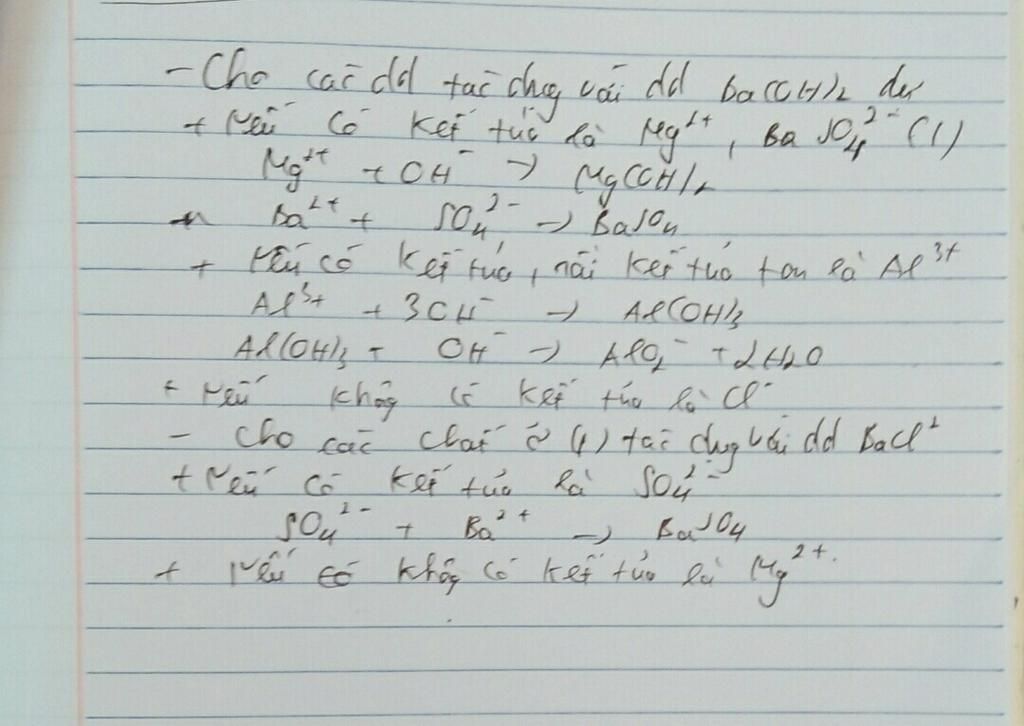 - Cho các dd tác dụng với dd Ba(OH)2 dư
+ Nếu có kết tủa là Mg²⁺, Ba SO₄²⁻ (1)
Mg²⁺ + OH⁻ → Mg(OH)₂
Ba²⁺ + SO₄²⁻ → BaSO₄
+ Nếu có kết tủa, rồi kết tủa tan là Al³⁺
Al³⁺ + 3OH⁻ → Al(OH)₃
Al(OH)₃ + OH⁻ → AlO₂⁻ + 2H₂O
+ Nếu không có kết tủa là Cl⁻
- Cho các chất ở (1) tác dụng với dd BaCl²
+ Nếu có kết tủa là SO₄²⁻
SO₄²⁻ + Ba²⁺ → BaSO₄
+ Nếu có không có kết tủa là Mg²⁺.